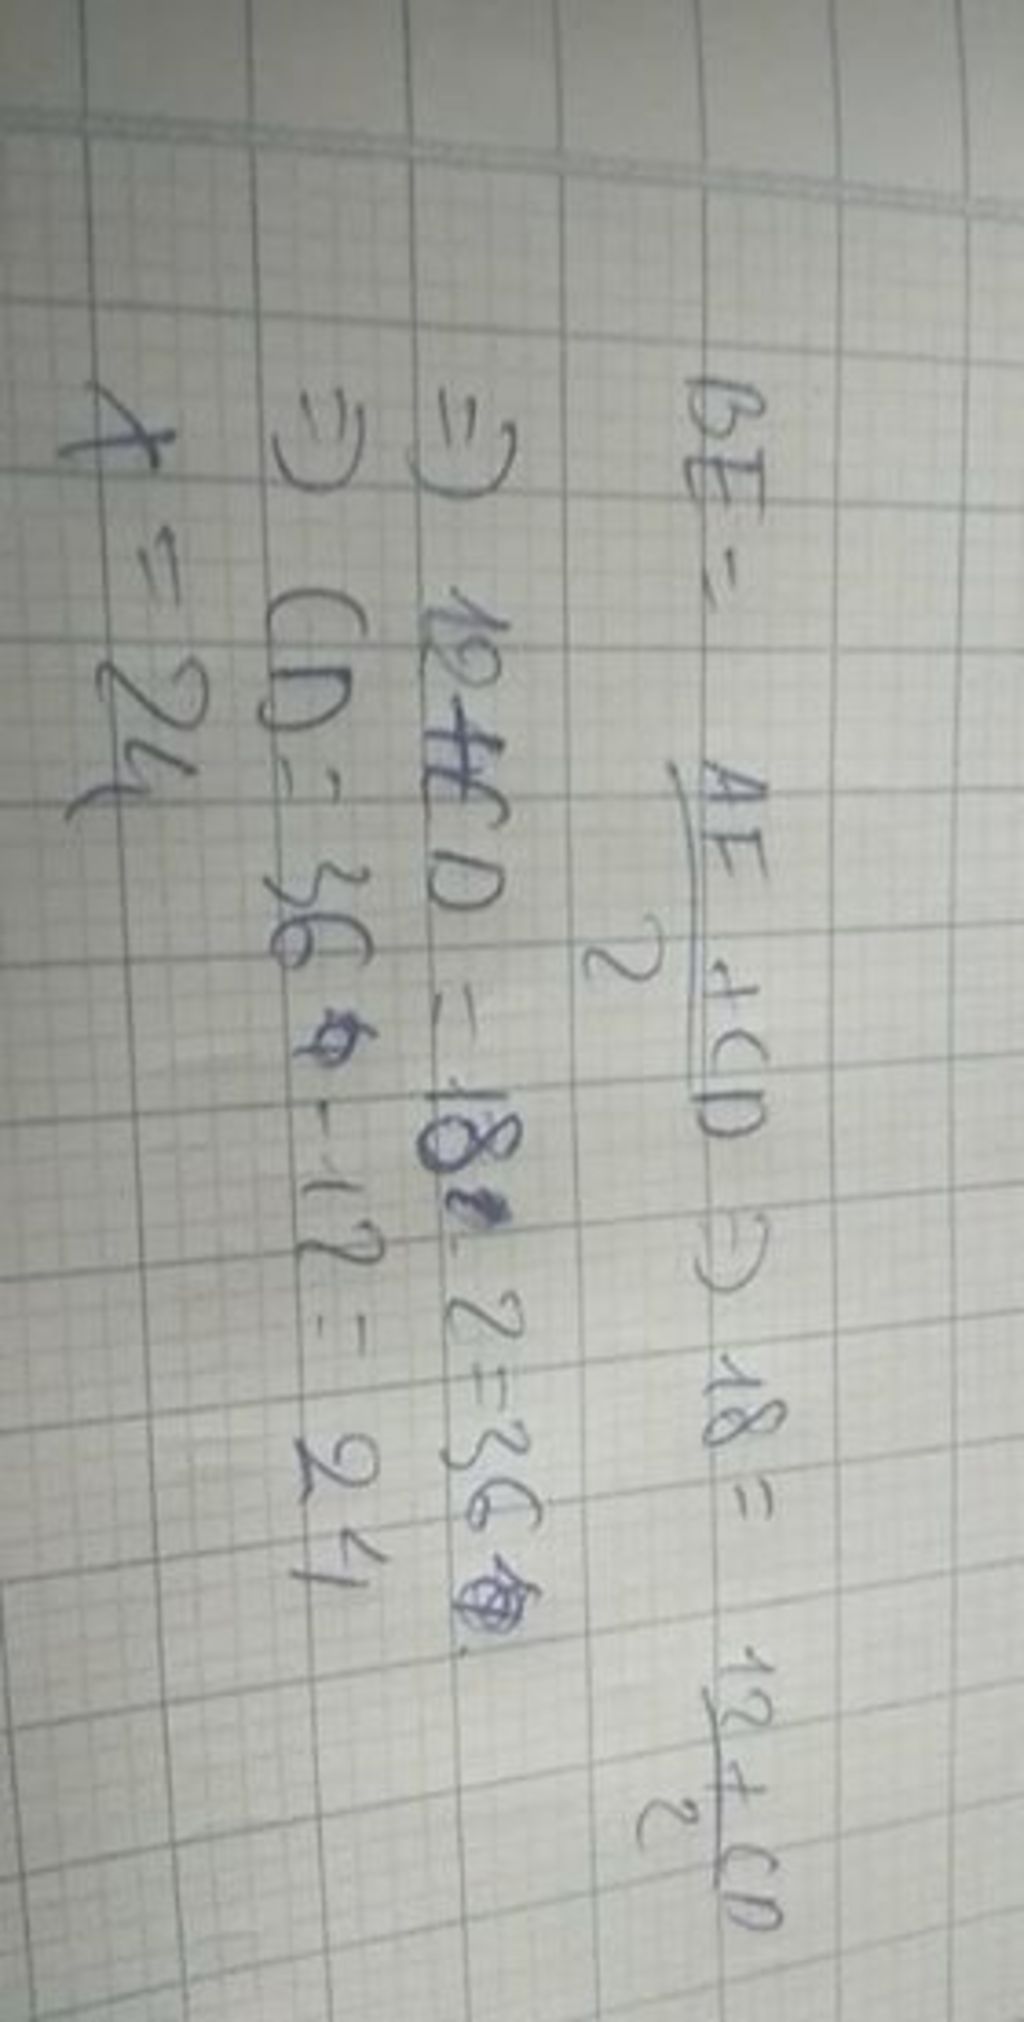 BE = AE + CD / 2 ⇒ 18 = 12 + CD / 2
⇒ 12 + CD = 18 . 2 = 36
⇒ CD = 36 - 12 = 24
x = 24